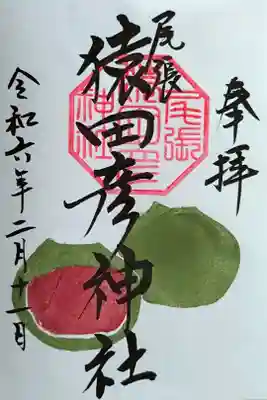 奉拝
尾張
猿田彦神社
令和六年二月十一日
尾張
猿田彦
神社